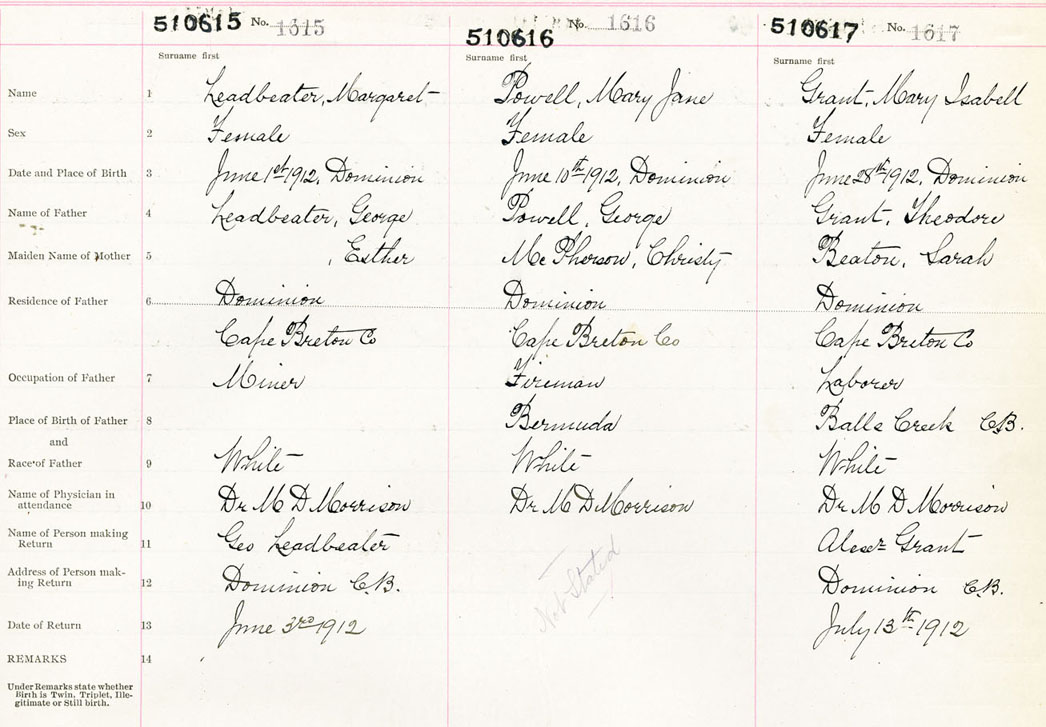 510615 No. 1615
510616 No. 1616
510617 No. 1617
Surname first Surname first Surname first
Name 1 Leadbeater, Margaret Powell, Mary Jane Grant, Mary Isabell
Sex 2 Female Female Female
Date and Place of Birth 3 June 1st 1912, Dominion June 10th 1912, Dominion June 28th 1912, Dominion
Name of Father 4 Leadbeater, George Powell, George Grant, Theodore
Maiden Name of Mother 5 , Esther Mc Pherson, Christy Beaton, Sarah
Residence of Father 6 Dominion Dominion Dominion
Cape Breton Co Cape Breton Co Cape Breton Co
Occupation of Father 7 Miner Fireman Laborer
Place of Birth of Father 8 Bermuda Balls Creek C.B.
and
Race of Father 9 White White White
Name of Physician in
attendance 10 Dr M D Morrison Dr M D Morrison Dr M D Morrison
Name of Person making
Return 11 Geo Leadbeater Alexr Grant
Address of Person mak-
ing Return 12 Dominion C.B. Not Stated Dominion C.B.
Date of Return 13 June 3rd 1912 July 13th 1912
REMARKS 14
Under Remarks state whether
Birth is Twin, Triplet, Ille-
gitimate or Still birth.